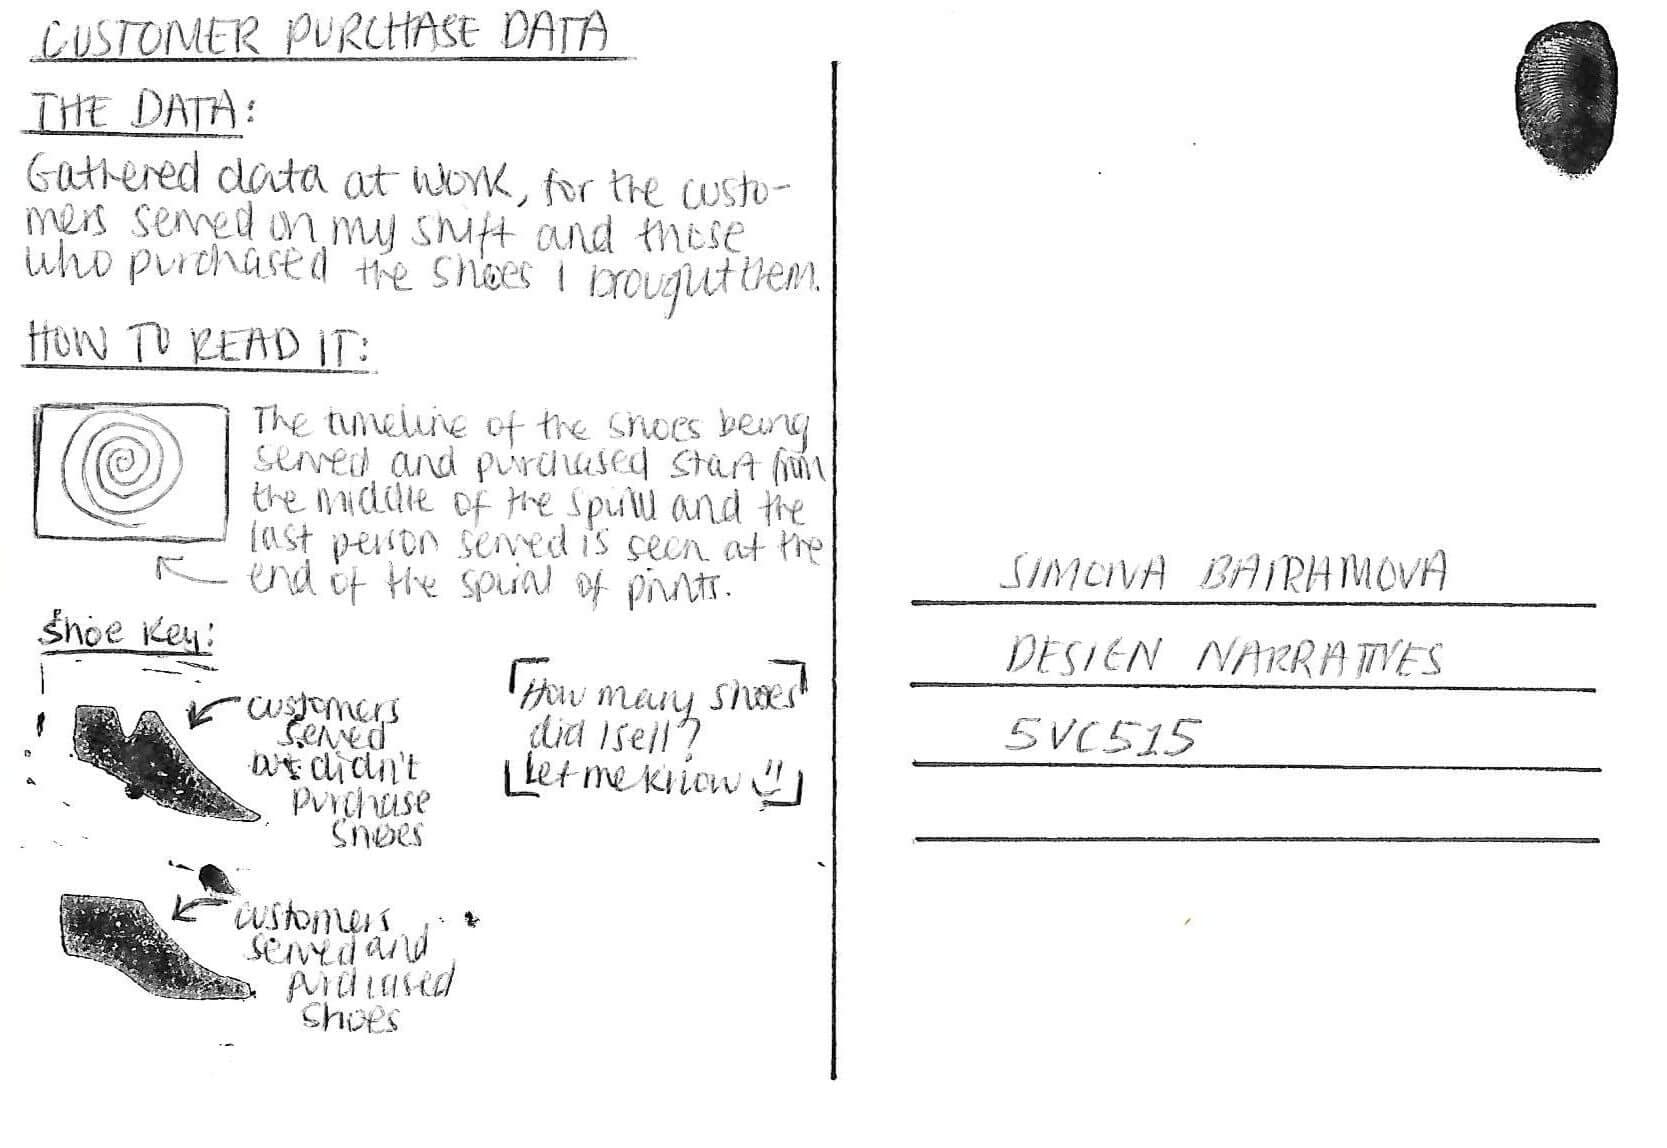 CUSTOMER PURCHASE DATA
THE DATA:
Gathered data at work, for the custo-
mers served on my shift and those
who purchased the shoes I brought them.
HOW TO READ IT:
The timeline of the shoes being
served and purchased start from
the middle of the spiral and the
last person served is seen at the
end of the spiral of prints.
Shoe Key:
customers
served
but didn't
purchase
shoes
How many shoes
did I sell?
Let me know
customers
served and
purchased
shoes
SIMONA BAIRAMOVA
DESIGN NARRATIVES
5VC515